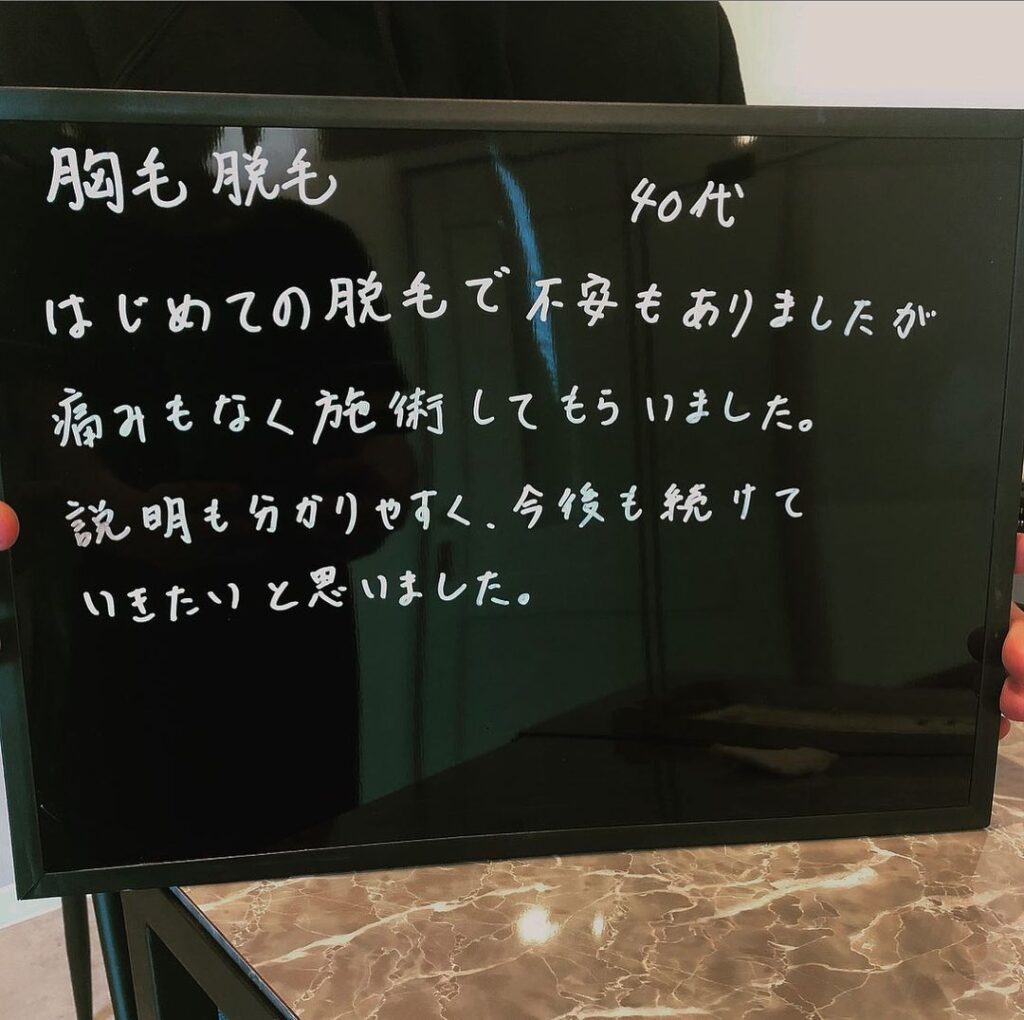 胸毛 脱毛 40代
はじめての脱毛で不安もありましたが
痛みもなく施術してもらいました。
説明も分かりやすく、今後も続けて
いきたいと思いました。